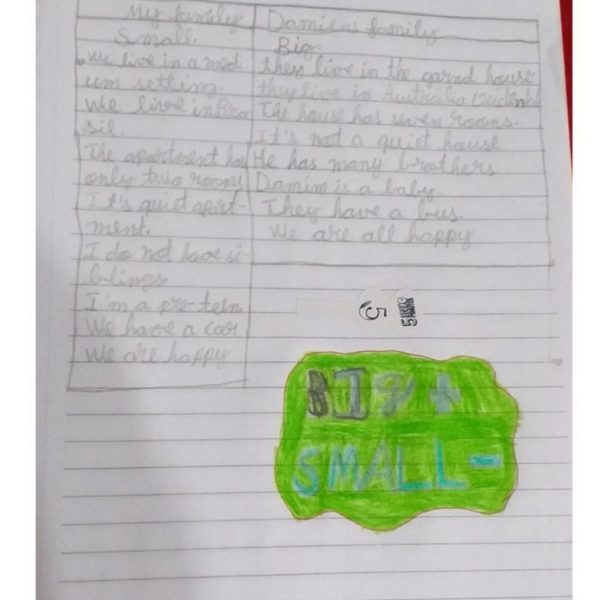 My family
Small.
We live in a medi
um setting.
We live in Bra
sil.
The apartment has
only two rooms
It's quiet apart-
ment.
I do not have si
blings
I'm a pre-teen
We have a car
We are happy
Damien family
Big.
they live in the garnd house.
they live in Australia Ocidental
The house has seven rooms.
It's not a quiet house
He has many brothers
Damim is a baby.
They have a bus.
We are all happy
5
5
BIg +
SMALL -